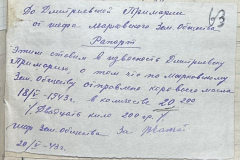 63
До Дмитриевчей Примарии
от шефа Марковского Зем. Общества
Рапорт
Этим ставлю в известность Дмитриевчую
Примарию, о том что по Марковскому
Зем. Обществу отправлено коровьего масла
18/V-1943г в количестве 20 200
/ Двадцать кило 200 гр. /
Шеф Зем. Общества За
20/V-43г.